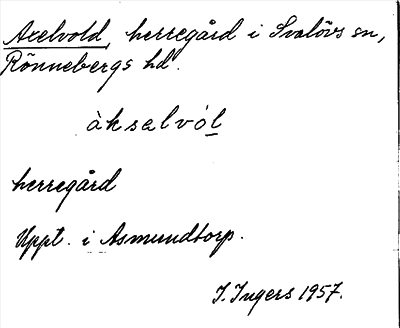 Axelvold, herregård i Svalövs sn,
Rönnebergs hd.
àksəlvól
herregård
Uppt. i Asmundtorp.
I. Ingers 1957.